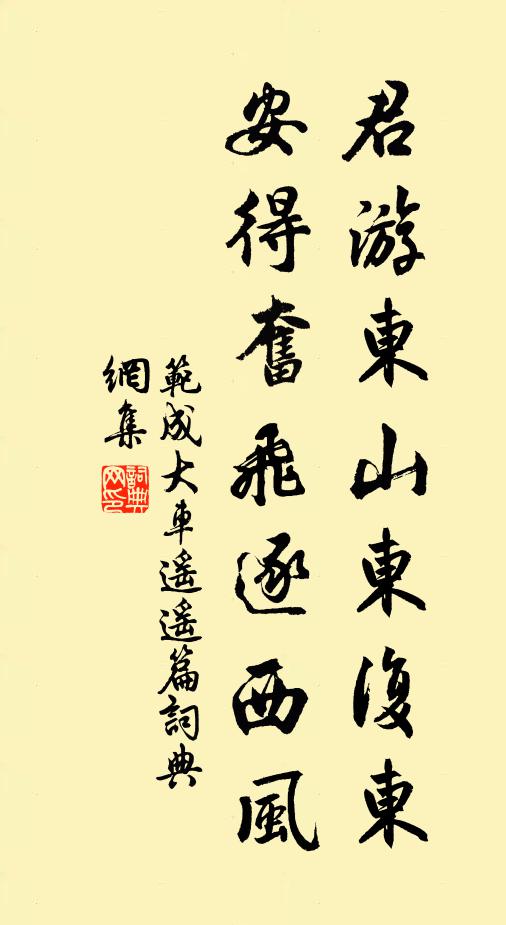 君游東山東復東
安得奮飛逐西風
範成大車遥遥篇詞典
網集
詞典網印